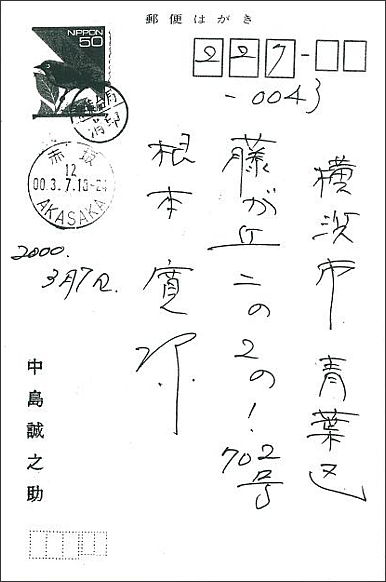 郵便はがき
NIPPON
50
227-
-0043
消印
赤坂
12
00.3.7.18-24
AKASAKA
横浜市青葉区
藤が丘二の2の1
702号
根本寛
2000.
3月7日.
中島誠之助